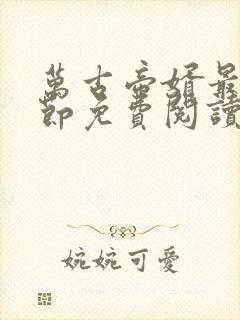 萬古帝婿最
節免費閱讀
婉婉可愛